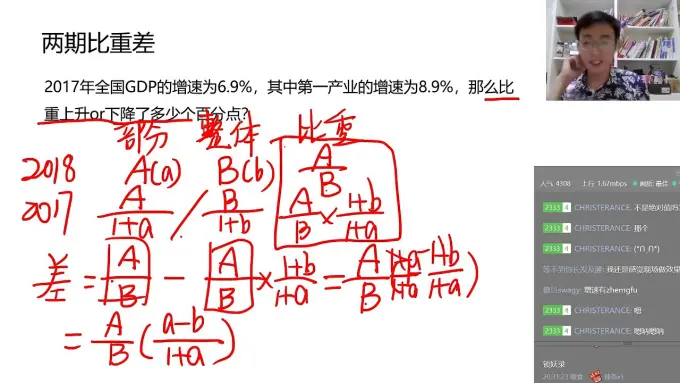 两期比重差
2017年全国GDP的增速为6.9%，其中第一产业的增速为8.9%，那么比
重上升or下降了多少个百分点?
部分 整体 比重
2018 A(a) B(b) A/B
2017 A/1+a / B/1+b A/B × 1+b/1+a
差 = A/B - A/B × 1+b/1+a = A/B 1+a/1+a - 1+b/1+a )
= A/B ( a-b/1+a )
人气 4308 上行: 1.67mbps 画质: 最佳
2333 4 CHRISTERANCE: 不是绝对值吗
2333 4 CHRISTERANCE: 那个
2333 4 CHRISTERANCE: (*∩_∩*)
swagy: 增速有zhemgfu
2333 4 CHRISTERANCE: 嗯
2333 4 CHRISTERANCE: 嗯呐嗯呐
锁妖录